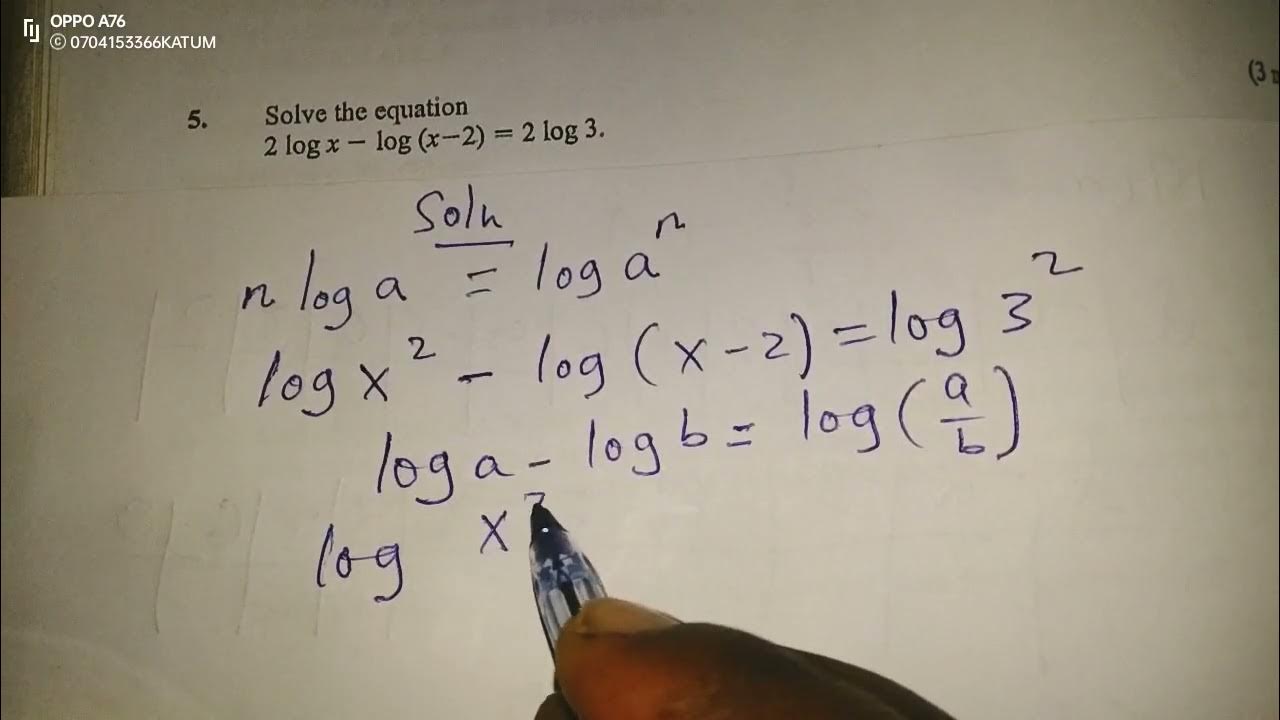 OPPO A76
© 0704153366KATUM
(3
5. Solve the equation
2 log x − log (x−2) = 2 log 3.
Soln
n log a = log aⁿ
log x² - log (x-2) = log 3²
log a - log b = log (a/b)
log x